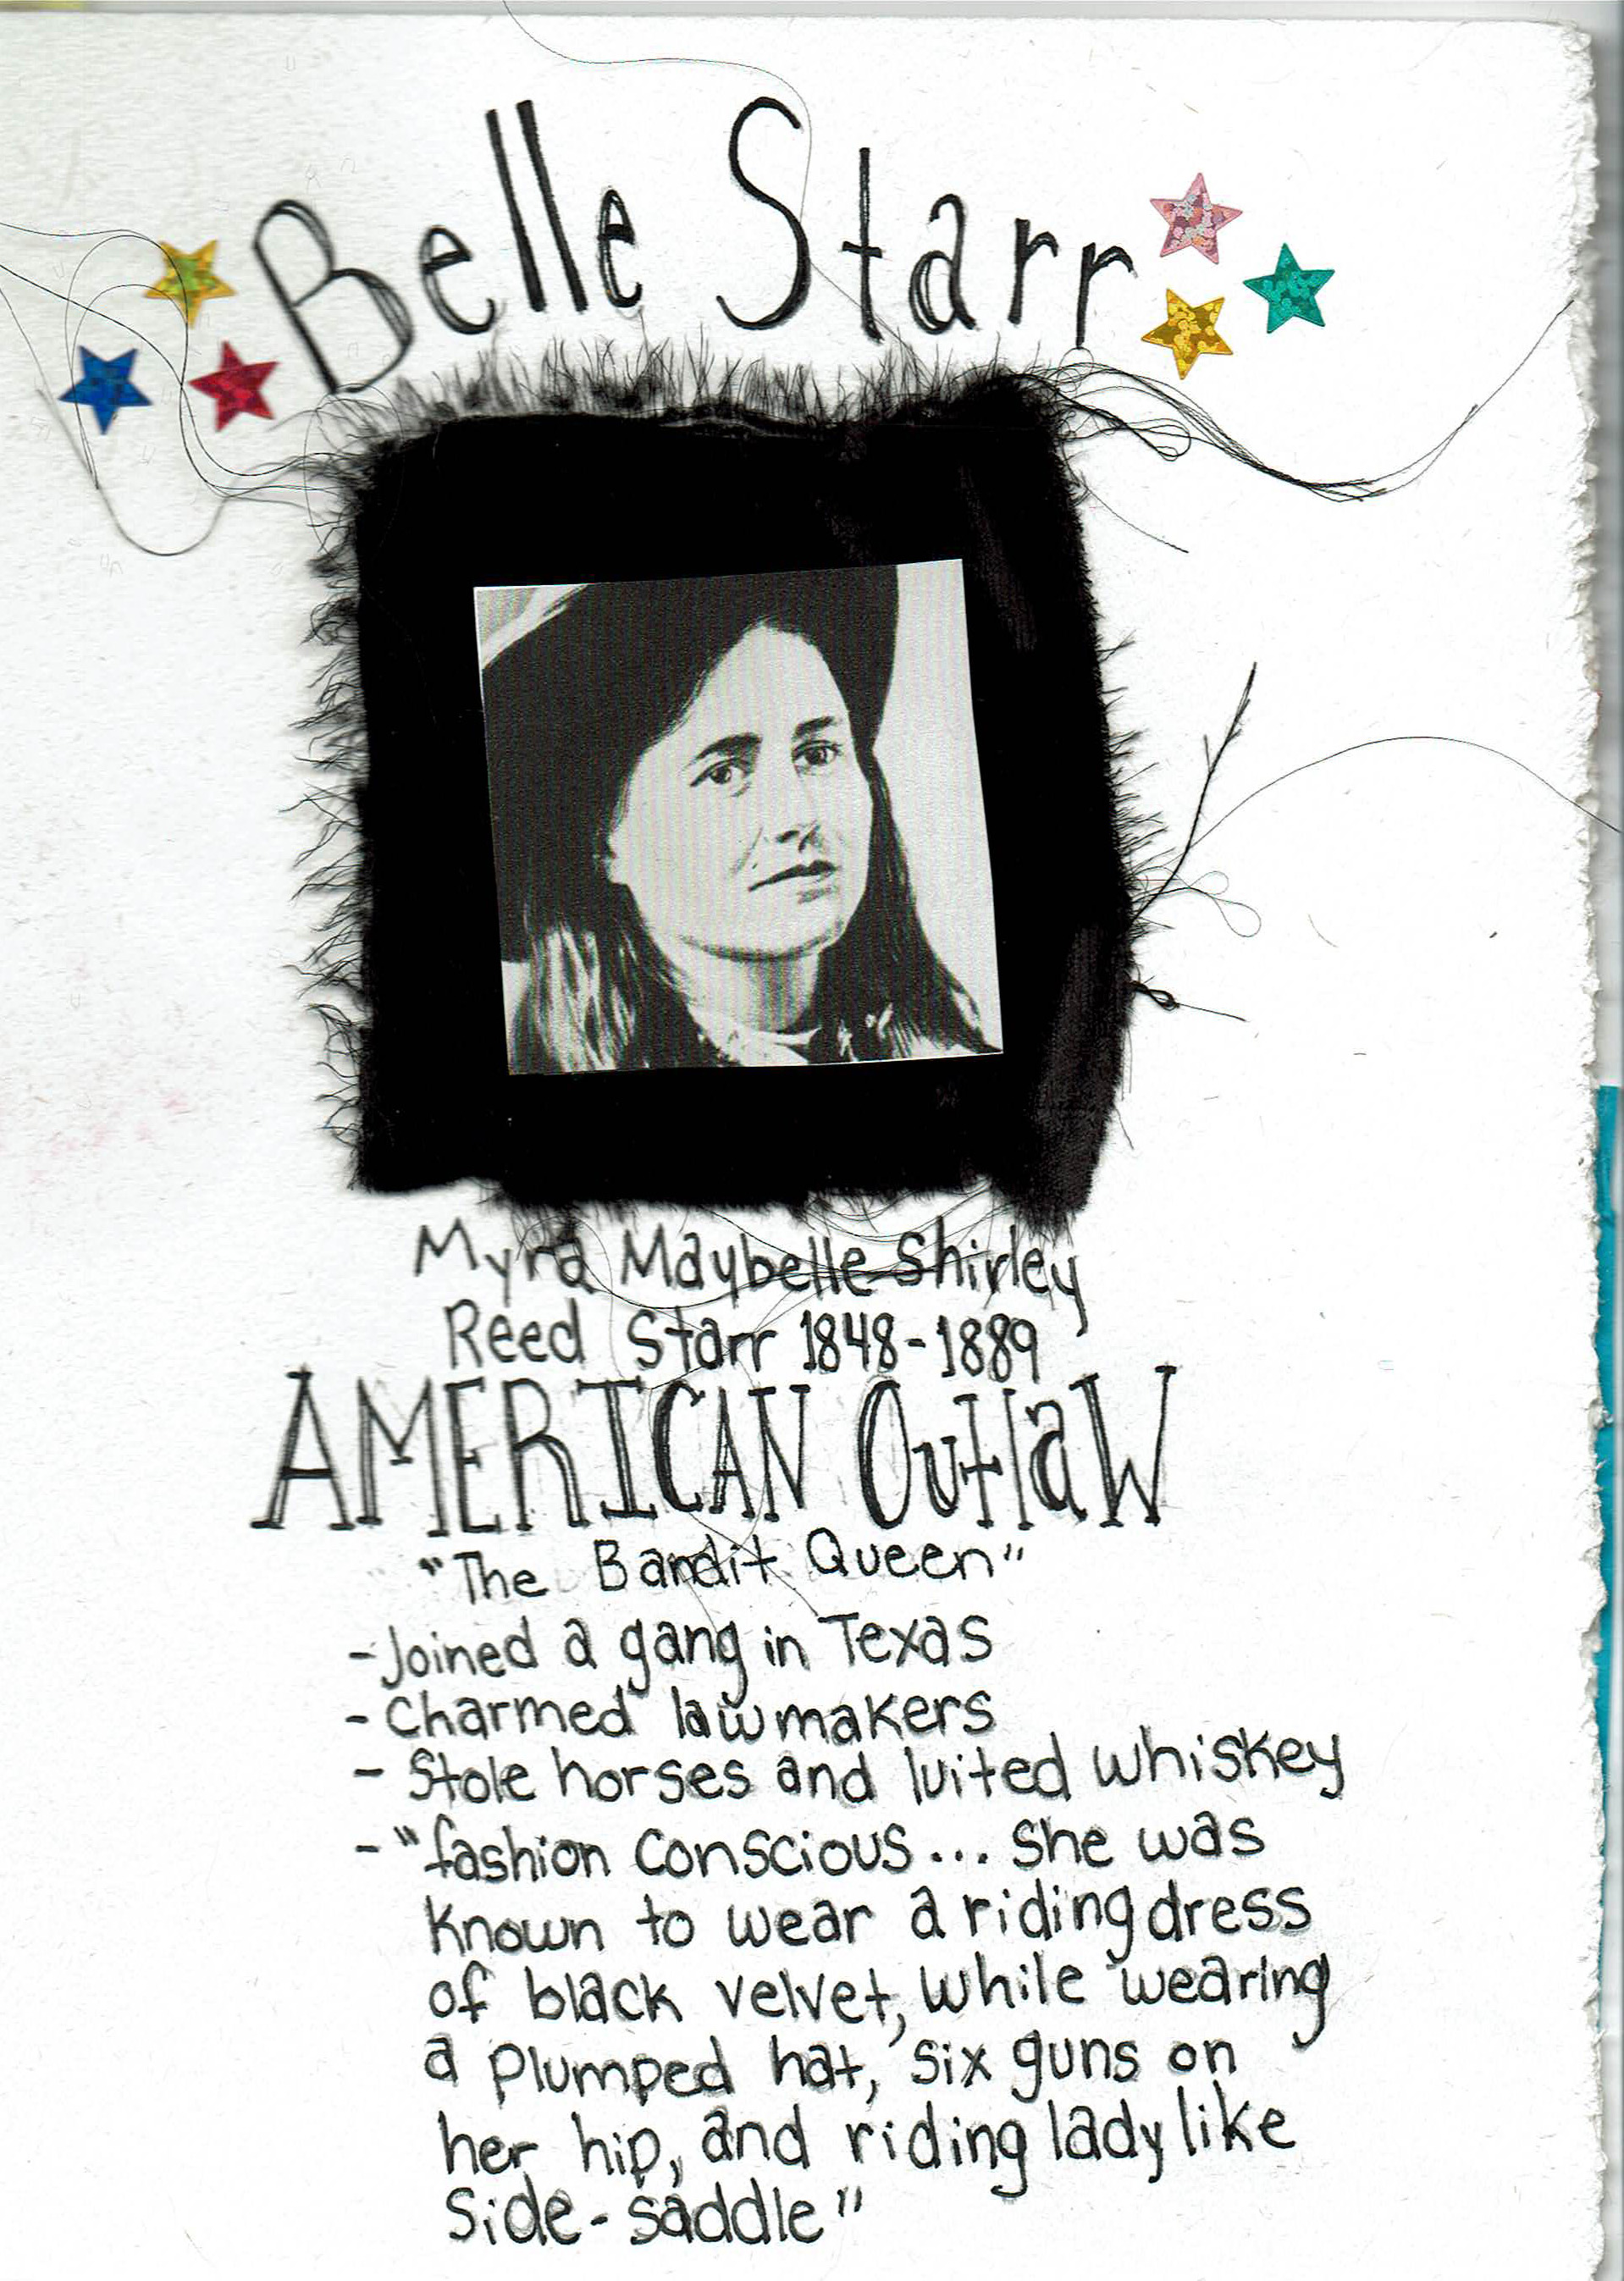 Belle Starr
Myra Maybelle Shirley
Reed Starr 1848-1889
AMERICAN OutlaW
"The Bandit Queen"
- Joined a gang in Texas
- Charmed lawmakers
- Stole horses and luited whiskey
- "fashion Conscious... She was
Known to wear a riding dress
of black velvet, while wearing
a plumped hat, six guns on
her hip, and riding lady like
Side-saddle"